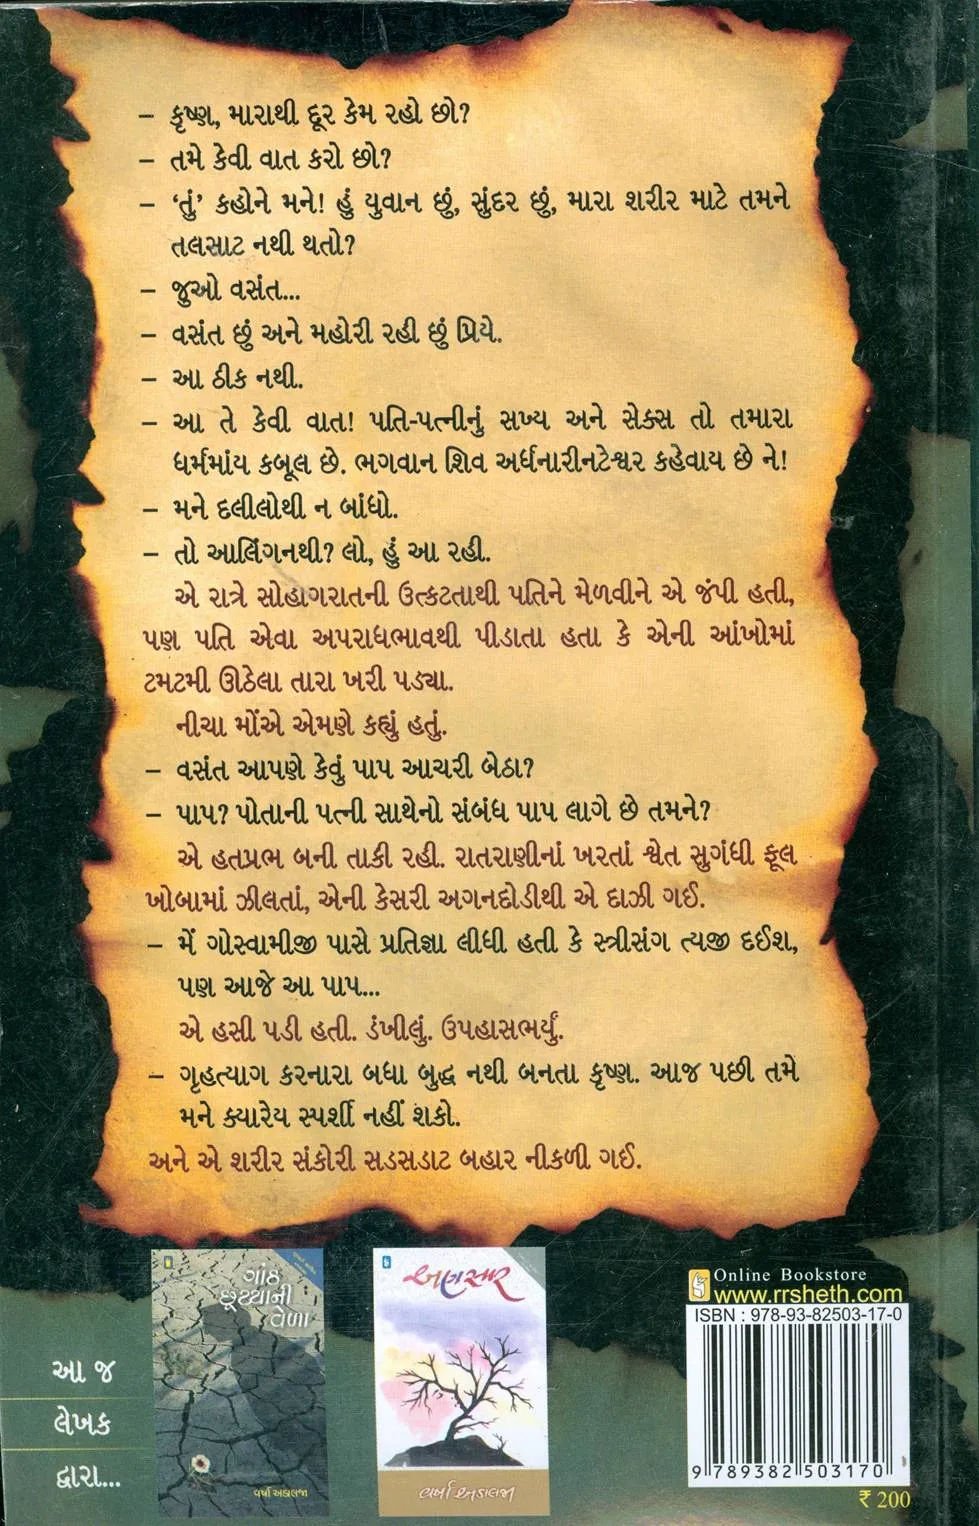 – કૃષ્ણ, મારાથી દૂર કેમ રહો છો?
– તમે કેવી વાત કરો છો?
– ‘તું’ કહોને મને! હું યુવાન છું, સુંદર છું, મારા શરીર માટે તમને
તલસાટ નથી થતો?
– જુઓ વસંત...
– વસંત છું અને મહોરી રહી છું પ્રિયે.
– આ ઠીક નથી.
– આ તે કેવી વાત! પતિ-પત્નીનું સખ્ય અને સેક્સ તો તમારા
ધર્મમાંય કબૂલ છે. ભગવાન શિવ અર્ધનારીનટેશ્વર કહેવાય છે ને!
– મને દલીલોથી ન બાંધો.
– તો આલિંગનથી? લો, હું આ રહી.
એ રાત્રે સોહાગરાતની ઉત્કટતાથી પતિને મેળવીને એ જંપી હતી,
પણ પતિ એવા અપરાધભાવથી પીડાતા હતા કે એની આંખોમાં
ટમટમી ઊઠેલા તારા ખરી પડ્યા.
નીચા મોંએ એમણે કહ્યું હતું.
– વસંત આપણે કેવું પાપ આચરી બેઠા?
– પાપ? પોતાની પત્ની સાથેનો સંબંધ પાપ લાગે છે તમને?
એ હતપ્રભ બની તાકી રહી. રાતરાણીનાં ખરતાં શ્વેત સુગંધી ફૂલ
ખોબામાં ઝીલતાં, એની કેસરી અગનદોડીથી એ દાઝી ગઈ.
– મેં ગોસ્વામીજી પાસે પ્રતિજ્ઞા લીધી હતી કે સ્ત્રીસંગ ત્યજી દઈશ,
પણ આજે આ પાપ...
એ હસી પડી હતી. ડંખીલું. ઉપહાસભર્યું.
– ગૃહત્યાગ કરનારા બધા બુદ્ધ નથી બનતા કૃષ્ણ. આજ પછી તમે
મને ક્યારેય સ્પર્શી નહીં શકો.
અને એ શરીર સંકોરી સડસડાટ બહાર નીકળી ગઈ.
આ જ
લેખક
દ્વારા...
ગાંઠ
છૂટ્યાની
વેળા
વર્ષા અડાલજા
અણસાર
વર્ષા અડાલજા
Online Bookstore
www.rrsheth.com
ISBN : 978-93-82503-17-0
9 789382 503170
₹ 200